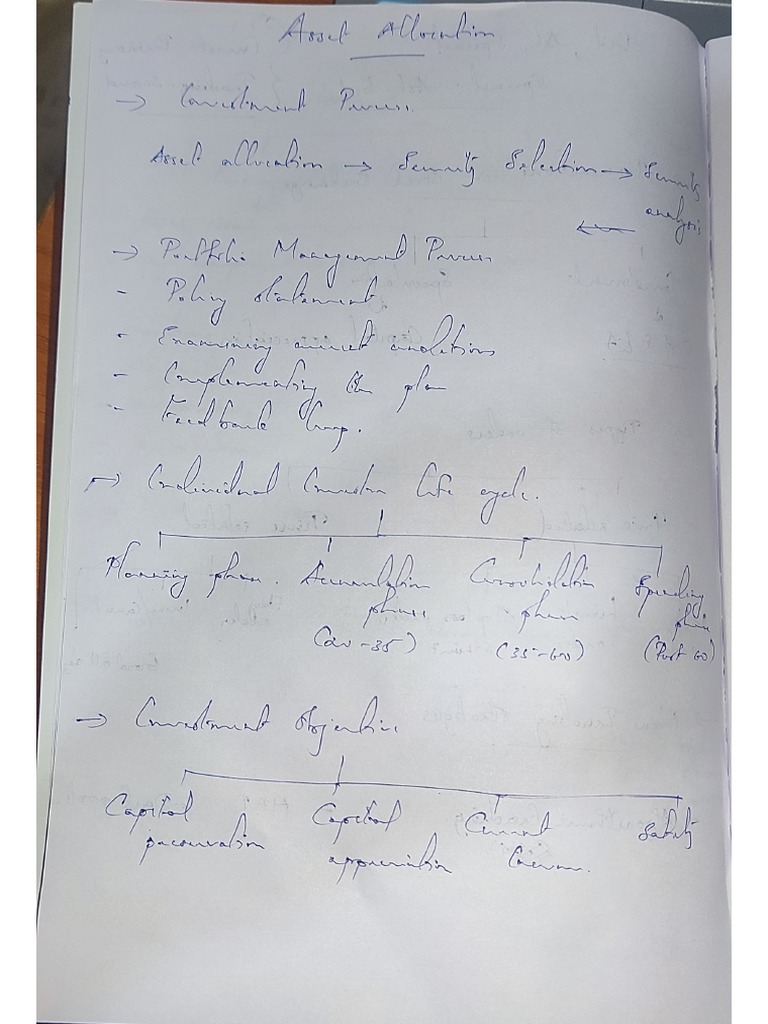 Asset Allocation
→ Investment Process.
Asset allocation → Security Selection → Security
analysis
→ Portfolio Management Process
- Policy statement
- Examining current conditions
- Implementing the plan
- Feedback loop.
→ Individual Investor life cycle.
Planning phase. Accumulation Consolidation Spending
phase phase phase
(20-35) (35-60) (Post 60)
→ Investment objective
Capital Capital Current Safety
preservation appreciation Income.